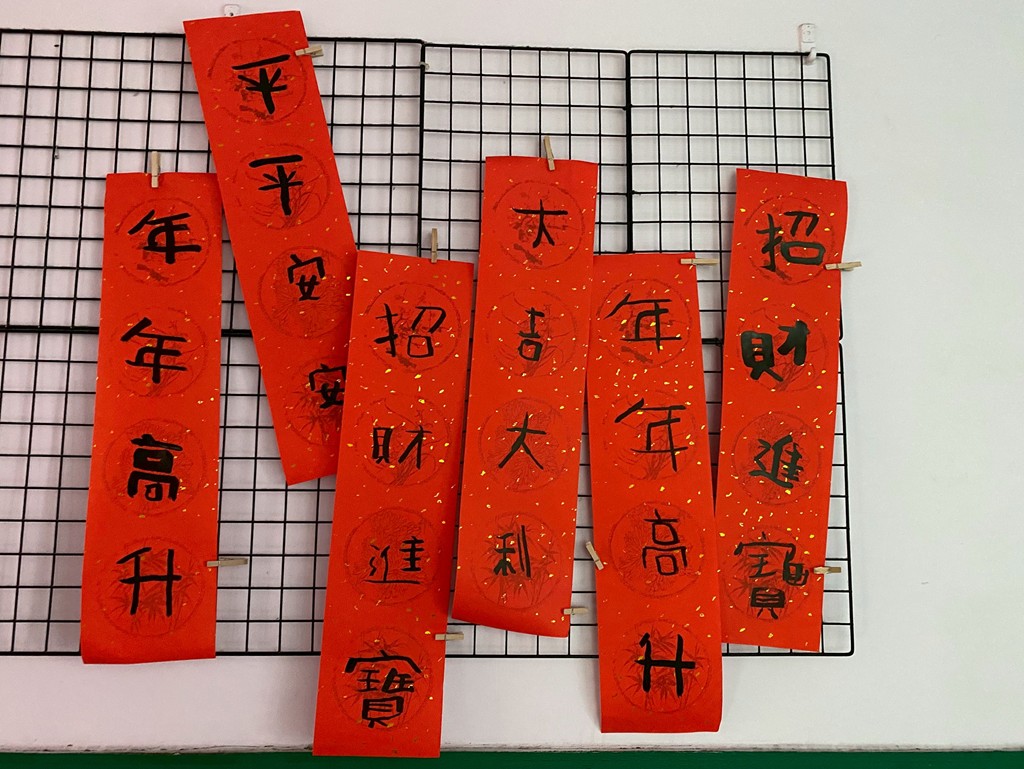 年年高升
平平安安
招財進寶
大吉大利
年年高升
招財進寶